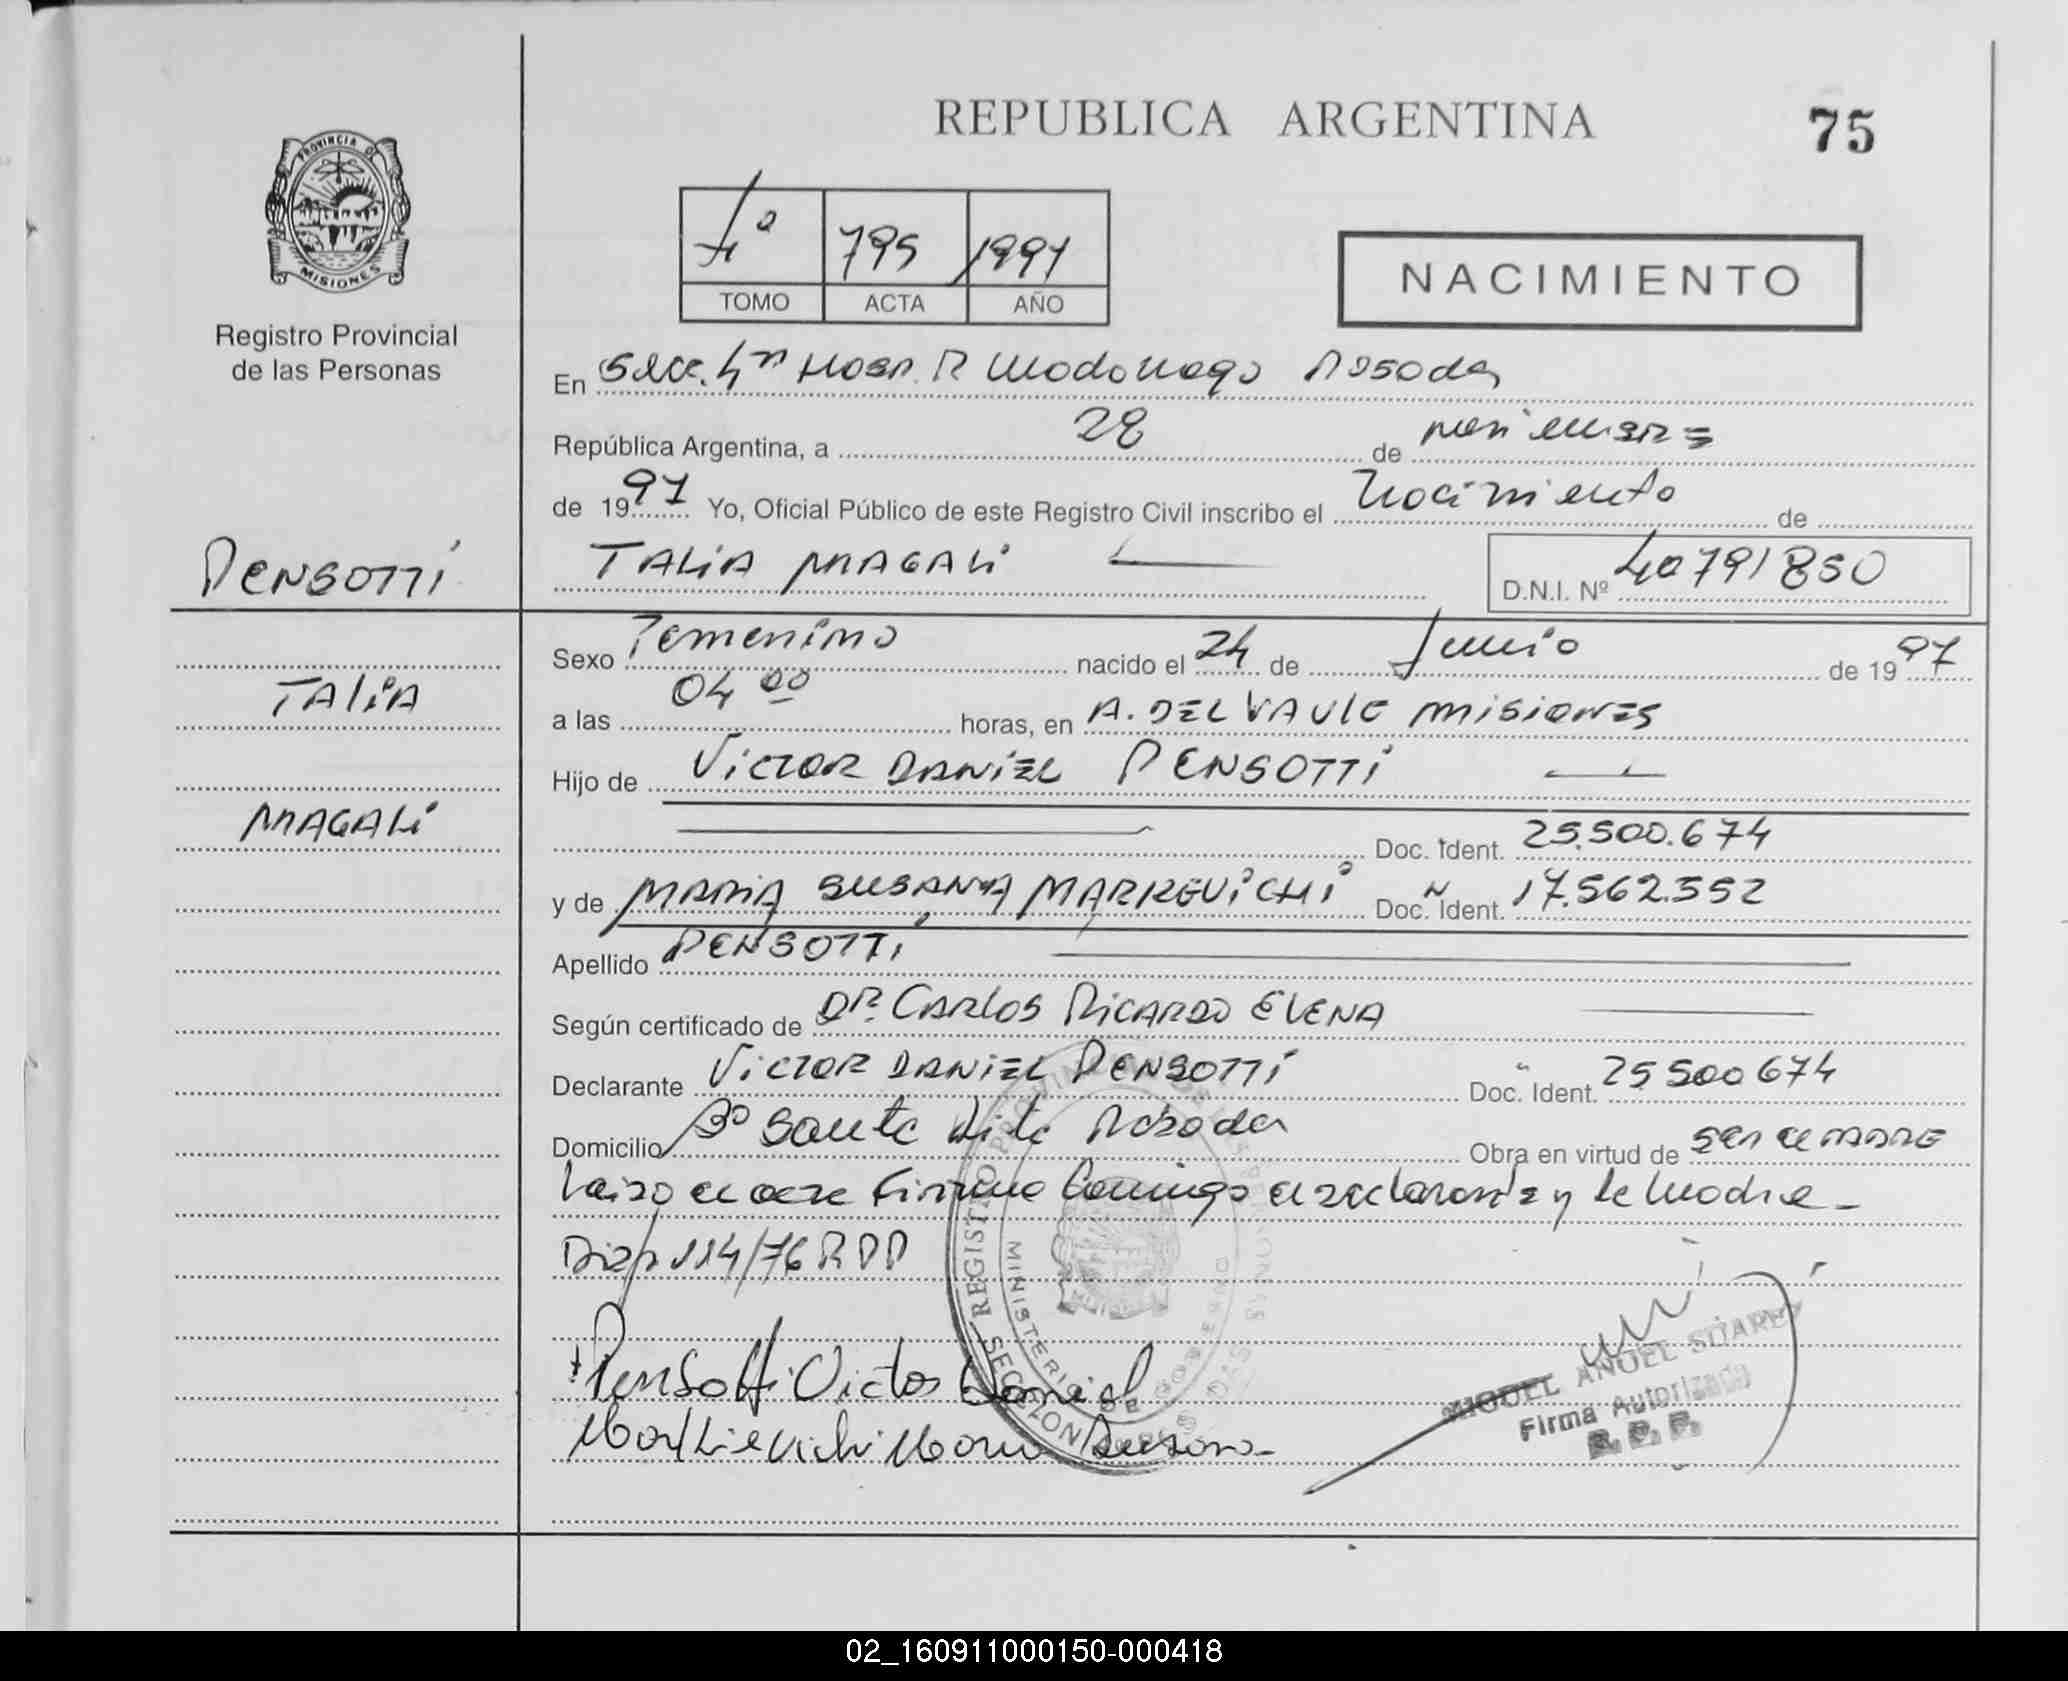 REPUBLICA ARGENTINA
75
PROVINCIA DE
MISIONES
Registro Provincial
de las Personas
4º 795 1997
TOMO ACTA AÑO
NACIMIENTO
En Secc. 4ta Hosp. R Madariaga Posadas
República Argentina, a 28 de noviembre
de 1997 Yo, Oficial Público de este Registro Civil inscribo el Nacimiento de
PENSOTTI
TALIA MAGALI
D.N.I. Nº 40791850
Sexo Femenino nacido el 24 de Junio de 1997
TALIA
a las 04 00 horas, en A. DEL VALLE MISIONES
Hijo de VICTOR DANIEL PENSOTTI
MAGALI
Doc. Ident. 25.500.674
y de MARIA SUSANA Doc. Ident. 17.562.352
Apellido PENSOTTI
Según certificado de DR. CARLOS RICARDO ELENA
Declarante VICTOR DANIEL PENSOTTI Doc. Ident. 25500674
Domicilio Bº Santa Rita Posadas Obra en virtud de SER EL PADRE
Leida el acta Firman Conmigo el declarante y la Madre
Disp 114/76 RPP
Pensotti Victor Daniel
Maria Susana
REGISTRO PROVINCIAL DE LAS PERSONAS
MINISTERIO DE GOBIERNO
SECCION
MIGUEL ANGEL SUAREZ
Firma Autorizada
R. P. P.
02_160911000150-000418